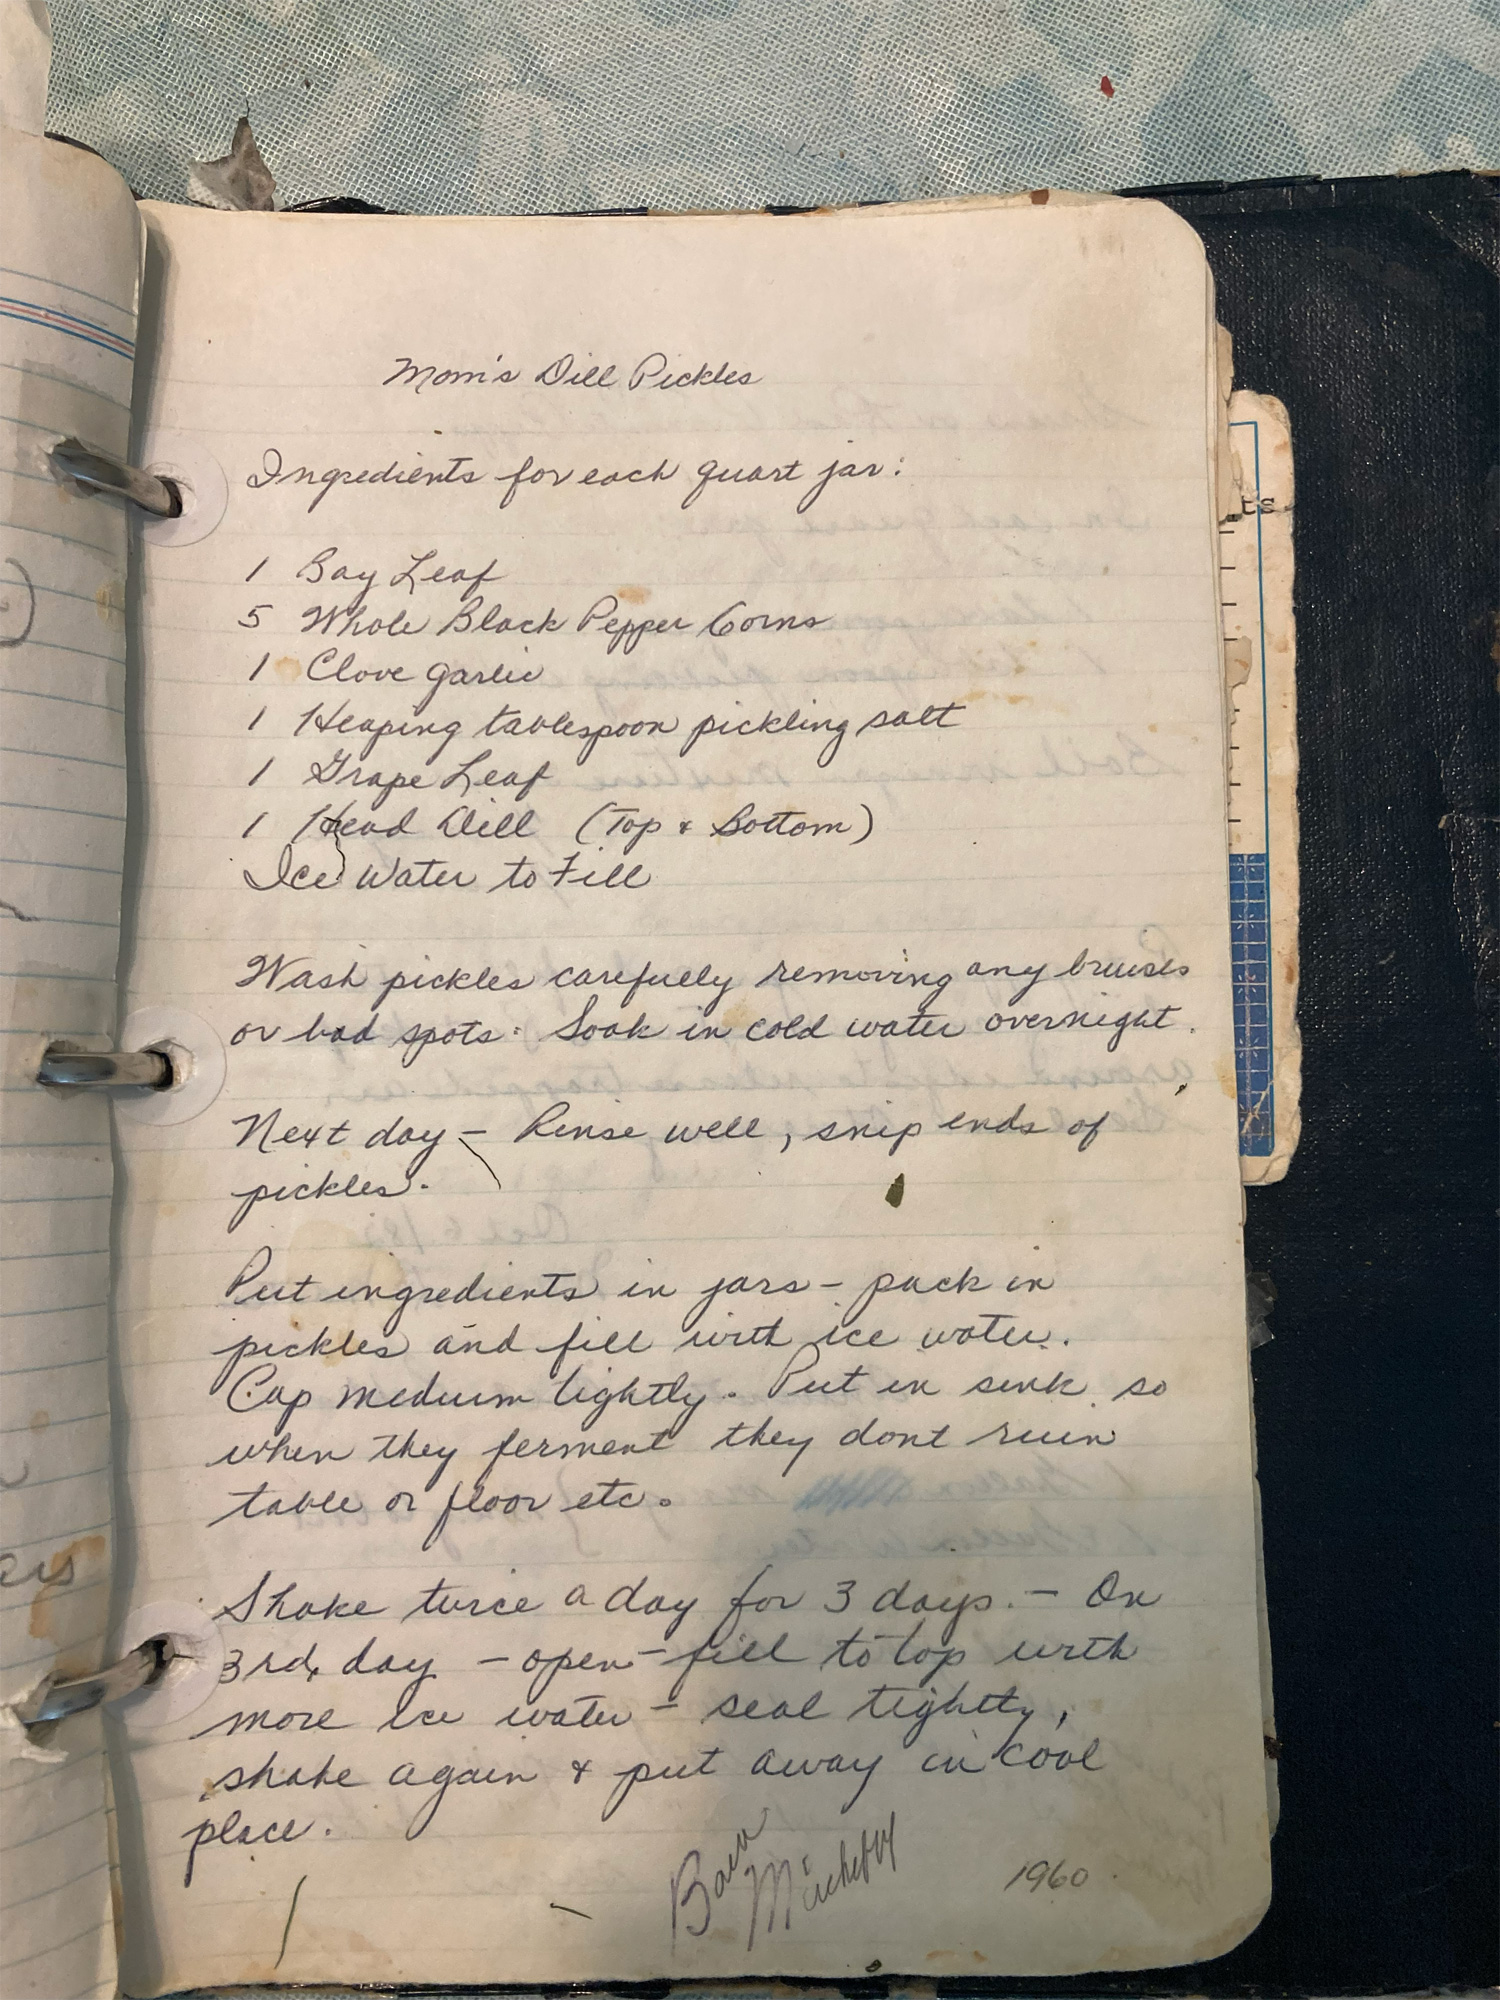 Mom's Dill Pickles
Ingredients for each quart jar:
1 Bay Leaf
5 Whole Black Pepper Corns
1 Clove garlic
1 Heaping tablespoon pickling salt
1 Grape Leaf
1 Head Dill (Top & Bottom)
Ice Water to Fill
Wash pickles carefully removing any bruises
or bad spots. Soak in cold water overnight.
Next day - Rinse well, snip ends of
pickles.
Put ingredients in jars - pack in
pickles and fill with ice water.
Cap medium tightly. Put in sink so
when they ferment they dont ruin
table or floor etc.
Shake twice a day for 3 days. - On
3rd, day - open - fill to top with
more ice water - seal tightly,
shake again & put away in cool
place.
1960
ts